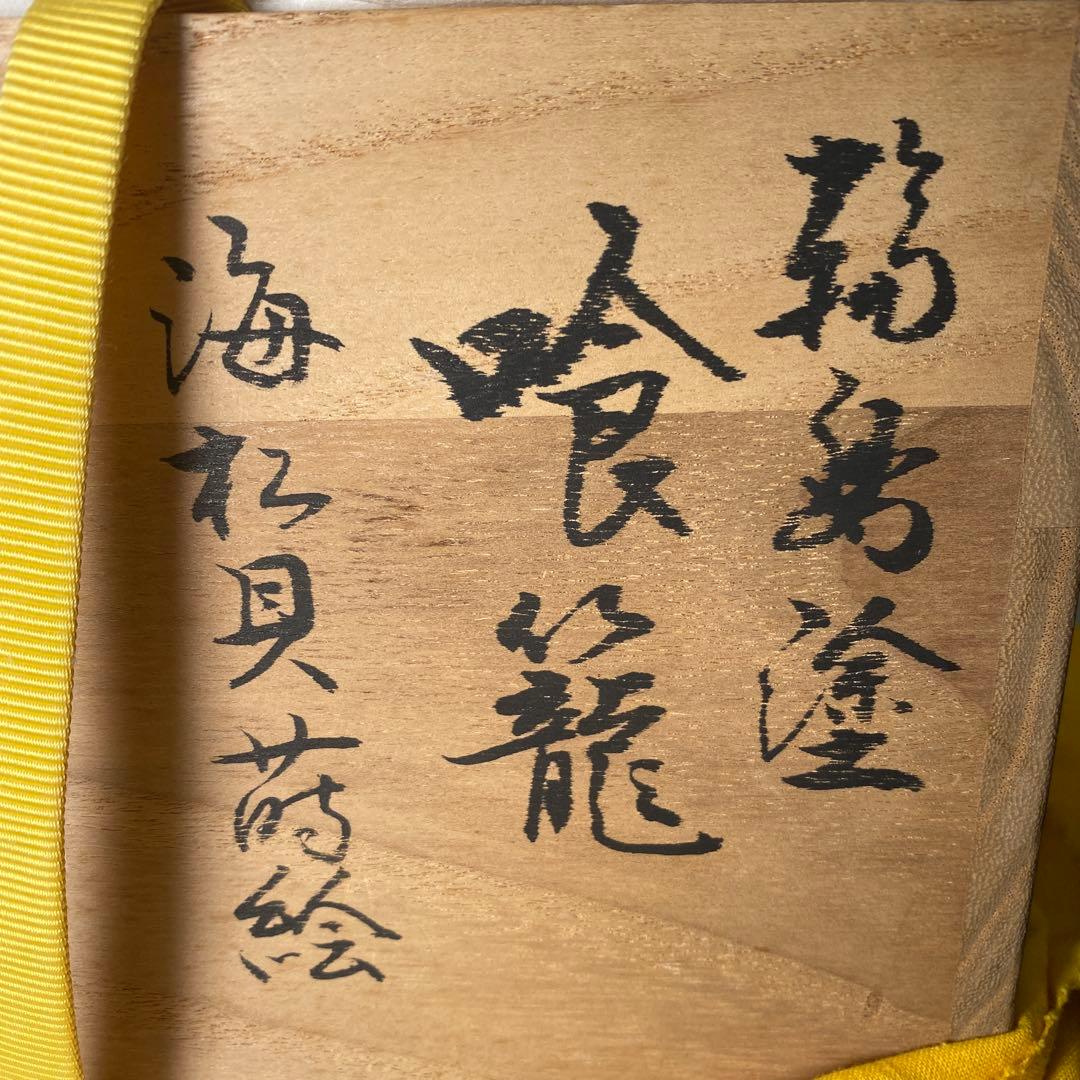 輪島塗
喰籠
海松貝蒔絵